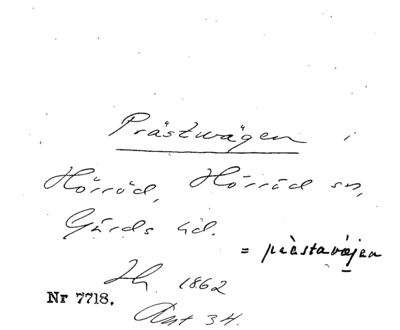 Prästvägen i
Hörröd, Hörröd sn,
Gärds hd.
= prästavä̱jen
Lh. 1862
Nr 7718.
Ant 34.